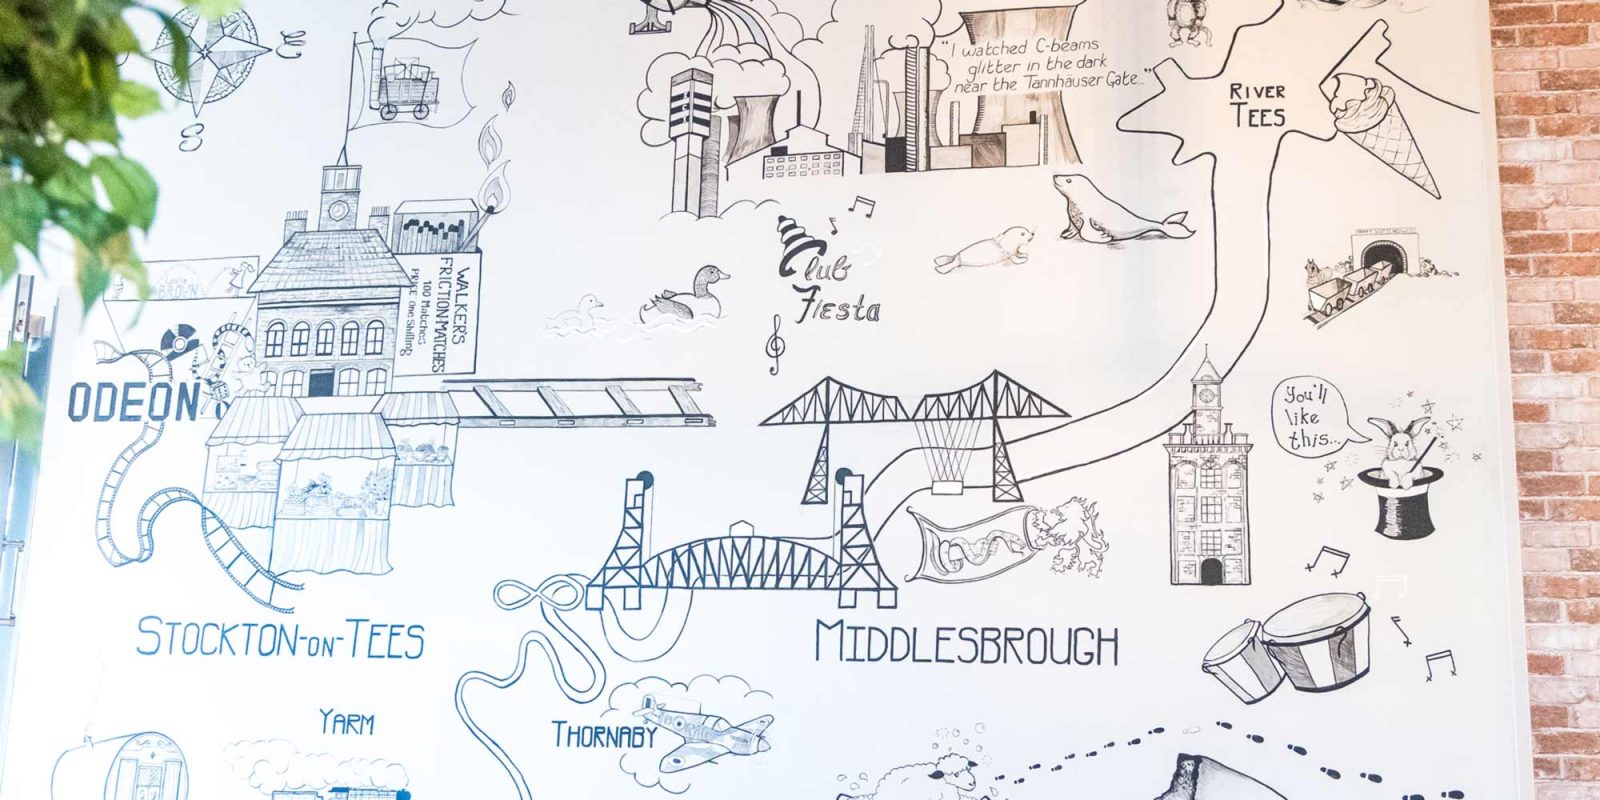 "I watched C-beams
glitter in the dark
near the Tannhäuser Gate..."
RIVER
TEES
Club
Fiesta
WALKER'S
FRICTION-MATCHES
100 Matches
PRICE One Shilling
BROWN
ODEON
You'll
like
this...
STOCKTON-ON-TEES
MIDDLESBROUGH
YARM
THORNABY